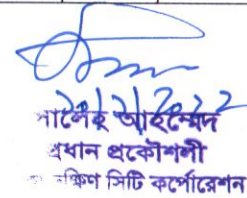 ২০/২/2022
সালেহ আহম্মেদ
প্রধান প্রকৌশলী
দক্ষিণ সিটি কর্পোরেশন